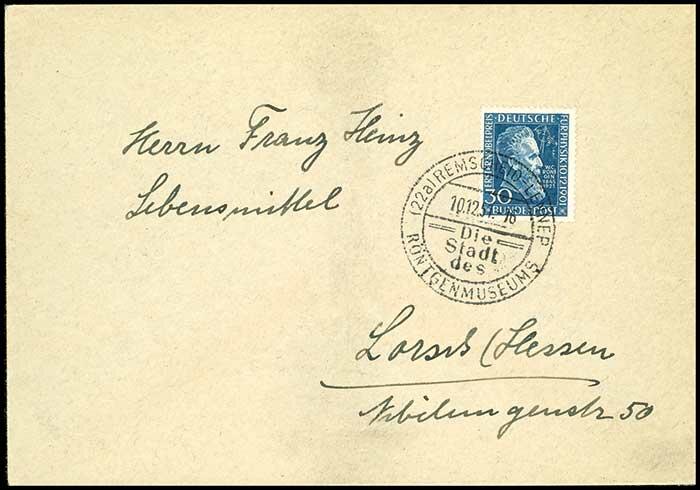 Herrn Franz Heinz
Lebensmittel
Lorsch (Hessen
Nibelungenstr 50
DEUTSCHE
ERSTER NOBELPREIS
FÜR PHYSIK 10.12.1901
W.C.
RÖNT
GEN
1845
1923
30
BUNDESPOST
(22a) REMSCHEID-LENNEP
10.12.51
Die
Stadt
des
RÖNTGENMUSEUMS